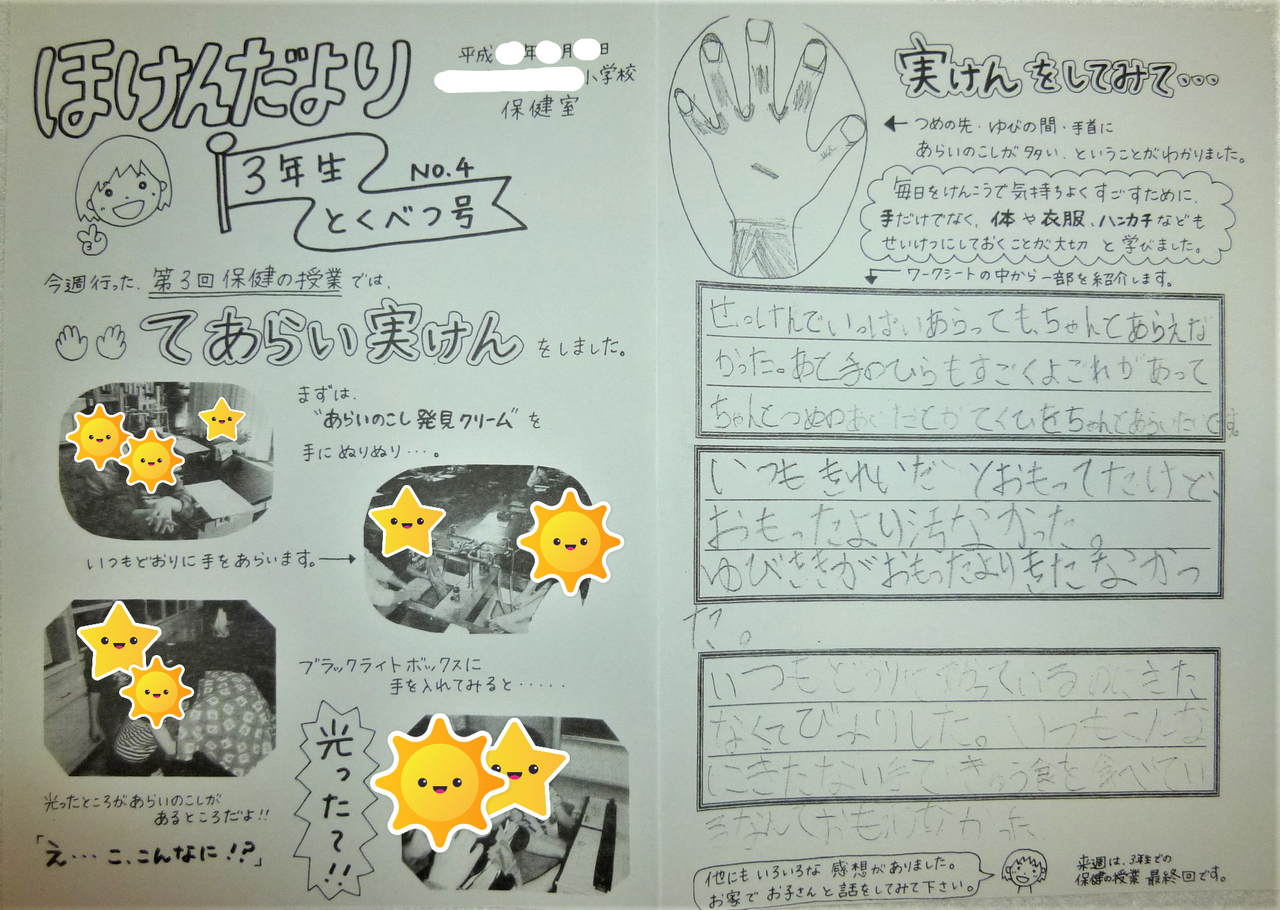 ほけんだより
平成 年 月 日
小学校
保健室
3年生 NO.4
とくべつ号
今週行った、第3回保健の授業では、
てあらい実けん をしました。
まずは、
"あらいのこし発見クリーム"を
手にぬりぬり…。
いつもどおりに手をあらいます。→
ブラックライトボックスに
手を入れてみると……
光ったて!!
光ったところがあらいのこしが
あるところだよ!!
「え…こ、こんなに!?」
実けんをしてみて…
← つめの先・ゆびの間・手首に
あらいのこしが多い、ということがわかりました。
毎日をけんこうで気持ちよくすごすために、
手だけでなく、体や衣服、ハンカチなども
せいけつにしておくことが大切 と学びました。
ワークシートの中から一部を紹介します。
せっけんでいっぱいあらっても、ちゃんとあらえな
かった。あと手のひらもすごくよごれがあって
ちゃんとつめの てくびをちゃんとあらいたいです。
いつもきれいだとおもってたけど、
おもったより汚なかった。
ゆびさきがおもったよりきたなかっ
た。
いつもどうりに っているのにきた
なくてびっくりした。いつもこんな
にきたない手できゅう食を食べてい
るなんておもわなかった
他にもいろいろな感想がありました。
お家でお子さんと話をしてみて下さい。
来週は、3年生での
保健の授業 最終回です。